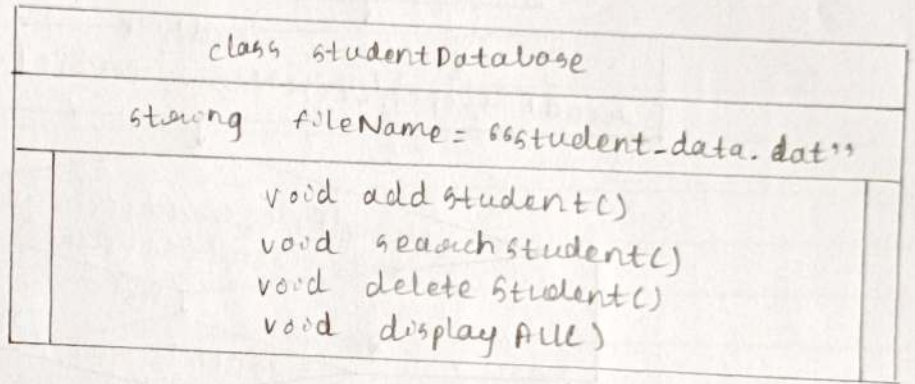 class studentDatabase
string fileName = "student-data.dat"
void addstudent()
void searchstudent()
void deletestudent()
void displayAll()